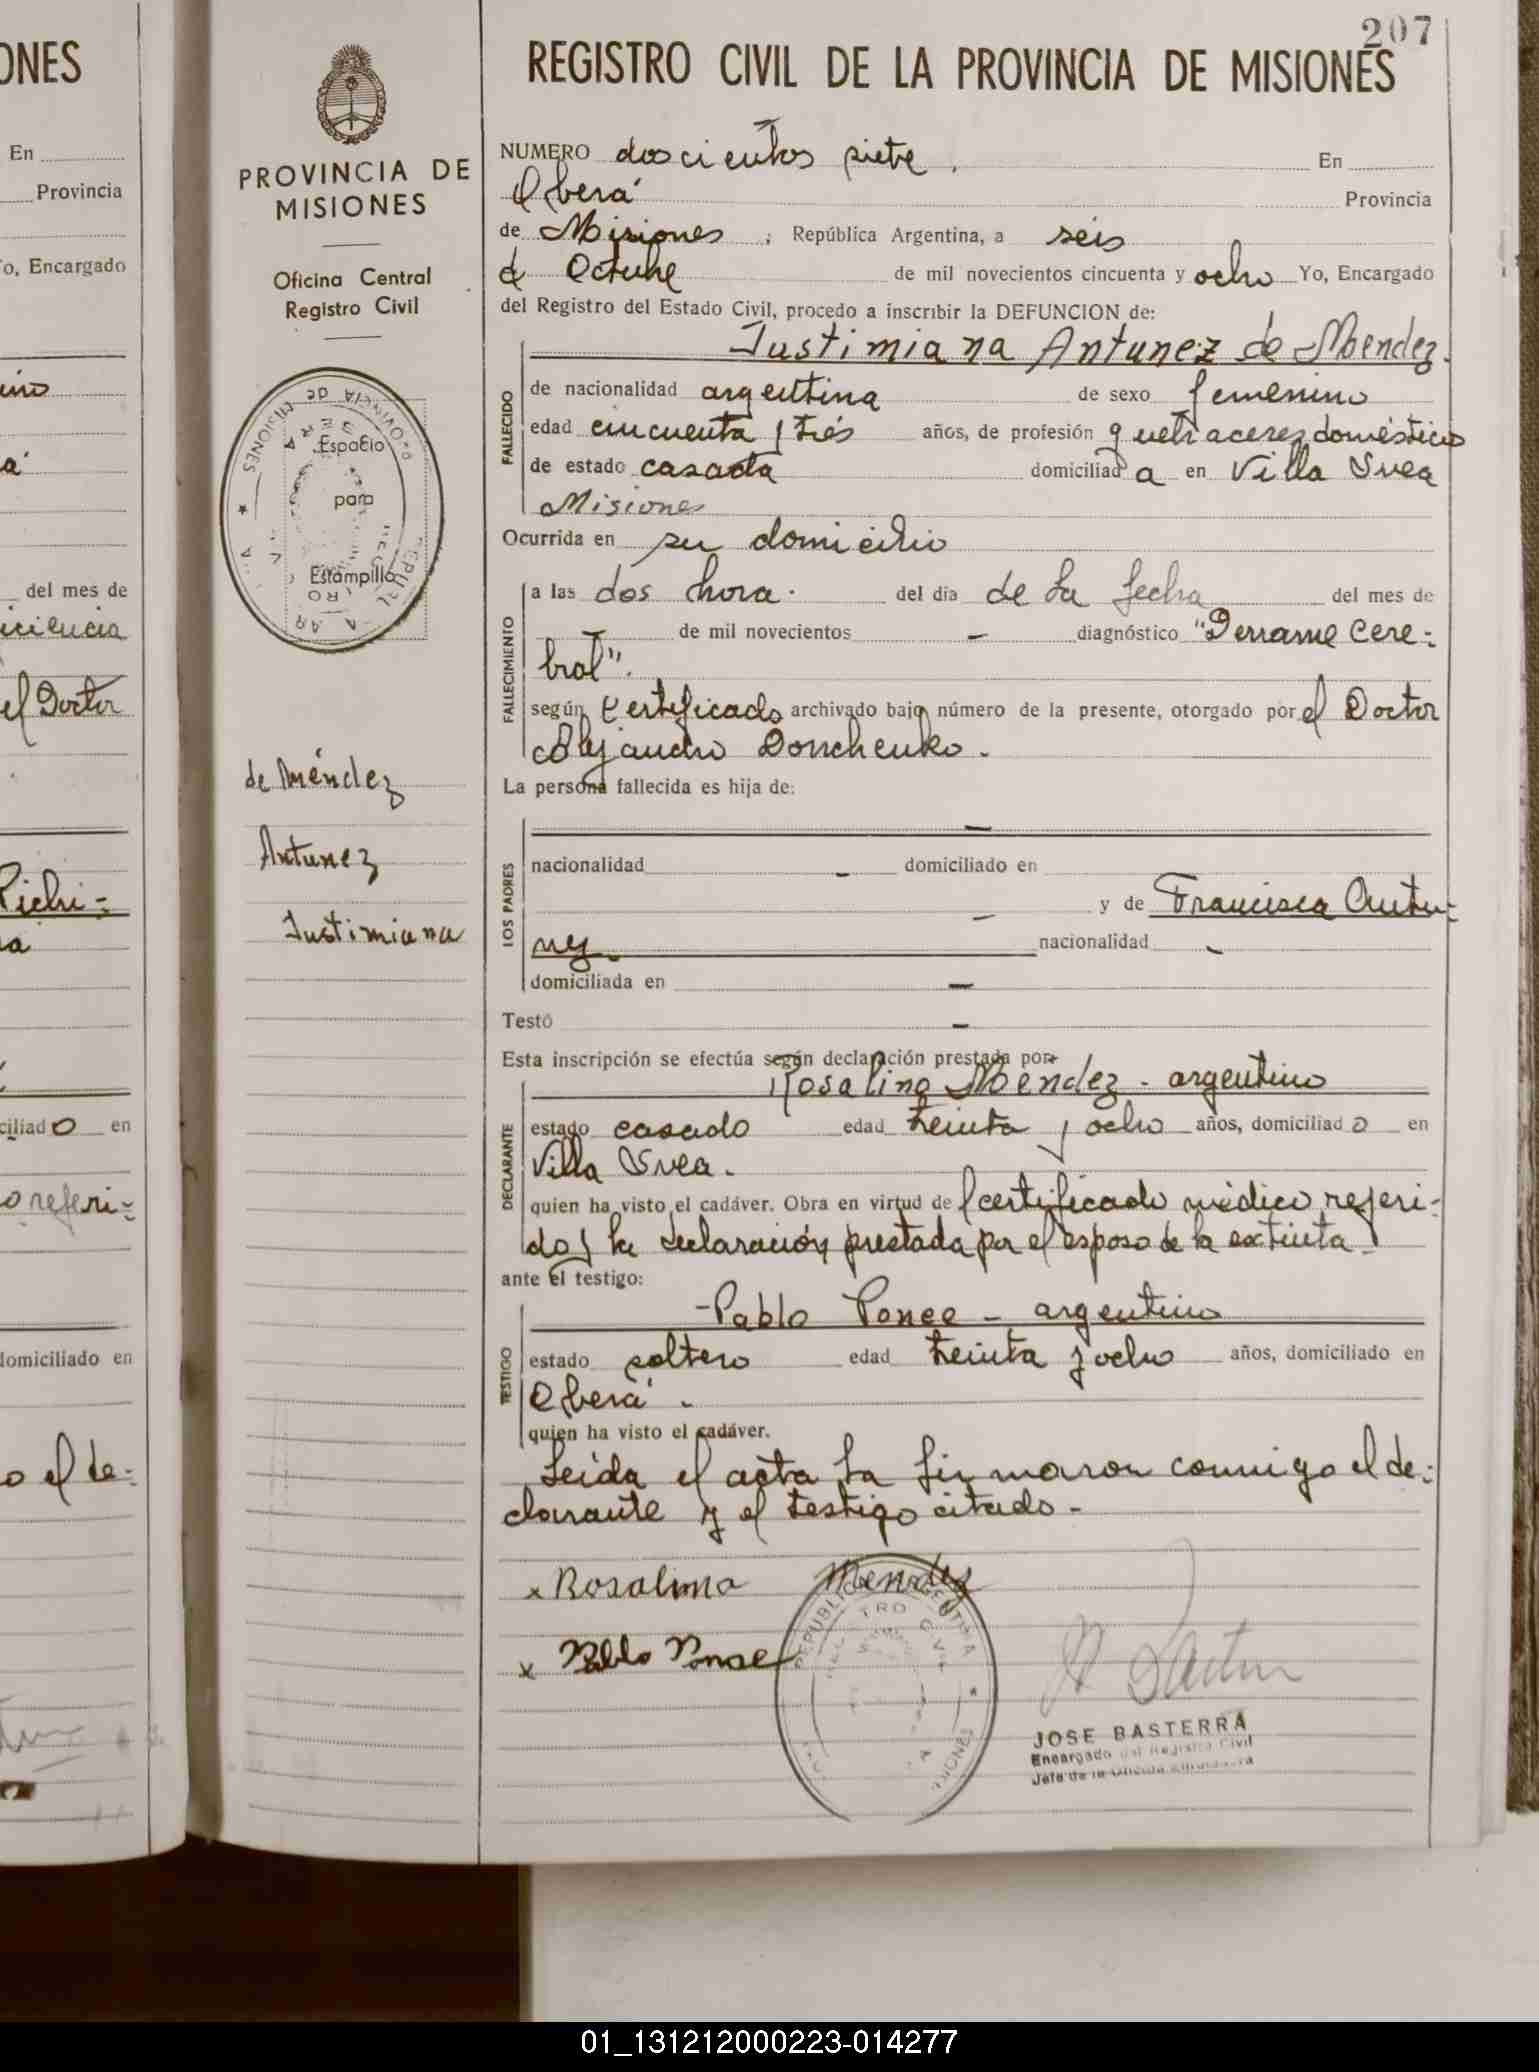 ONES
En
Provincia
o, Encargado
ino
a
del mes de
iciencia
el Doctor
Pichi-
a
ciliado en
o referi-
domiciliado en
o el de-
PROVINCIA DE
MISIONES
Oficina Central
Registro Civil
PROVINCIA DE MISIONES
OBERA
Espacio
para
Estampilla
de Méndez
Antunez
Justimiana
207
REGISTRO CIVIL DE LA PROVINCIA DE MISIONES
NUMERO doscientos siete. En
Oberá Provincia
de Misiones ; República Argentina, a seis
de Octubre de mil novecientos cincuenta y ocho Yo, Encargado
del Registro del Estado Civil, procedo a inscribir la DEFUNCION de:
Justimiana Antunez de Mendez.
FALLECIDO
de nacionalidad argentina de sexo femenino
edad cincuenta y tres años, de profesión quehaceres domésticos
de estado casada domiciliada en Villa Svea
Misiones
Ocurrida en su domicilio
FALLECIMIENTO
a las dos hora. del día de la fecha del mes de
- de mil novecientos - diagnóstico "Derrame Cere-
bral".
según Certificado archivado bajo número de la presente, otorgado por el Doctor
Alejandro Donchenko.
La persona fallecida es hija de:
LOS PADRES
-
nacionalidad - domiciliado en
- y de Francisca Antu-
nez. nacionalidad -
domiciliada en -
Testó -
Esta inscripción se efectúa según declaración prestada por
DECLARANTE
Rosalino Mendez - argentino
estado casado edad treinta y ocho años, domiciliado en
Villa Svea.
quien ha visto el cadáver. Obra en virtud de certificado médico referi-
do y la declaración prestada por el esposo de la extinta
ante el testigo:
TESTIGO
-Pablo Ponce - argentino
estado soltero edad treinta y ocho años, domiciliado en
Oberá.
quien ha visto el cadáver.
Leída el acta la firmaron conmigo el de-
clarante y el testigo citado-
x Rosalino Mendez
x Pablo Ponse
REPUBLICA ARGENTINA
MISIONES
JOSE BASTERRA
Encargado del Registro Civil
01_131212000223-014277